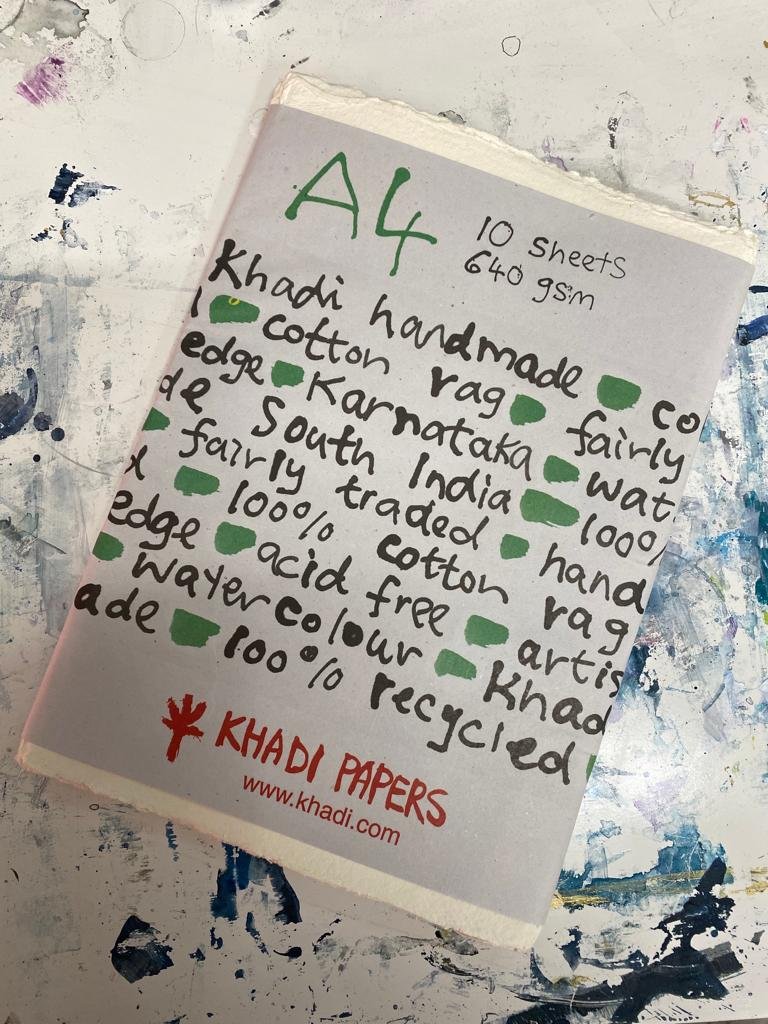 A4
10 sheets
640 gsm
Khadi handmade co
l cotton rag fairly
edge Karnataka wat
de South India 100%
fairly traded hand
d 100% cotton rag
edge acid free artis
watercolour Khad
ade 100% recycled
KHADI PAPERS
www.khadi.com